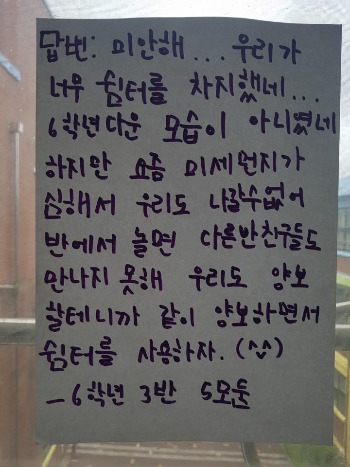 답변: 미안해... 우리가
너무 쉼터를 차지했네...
6학년다운 모습이 아니였네
하지만 요즘 미세먼지가
심해서 우리도 나갈수없어
반에서 놀면 다른반친구들도
만나지 못해 우리도 양보
할테니까 같이 양보하면서
쉼터를 사용하자. (^^)
- 6학년 3반 5모둠